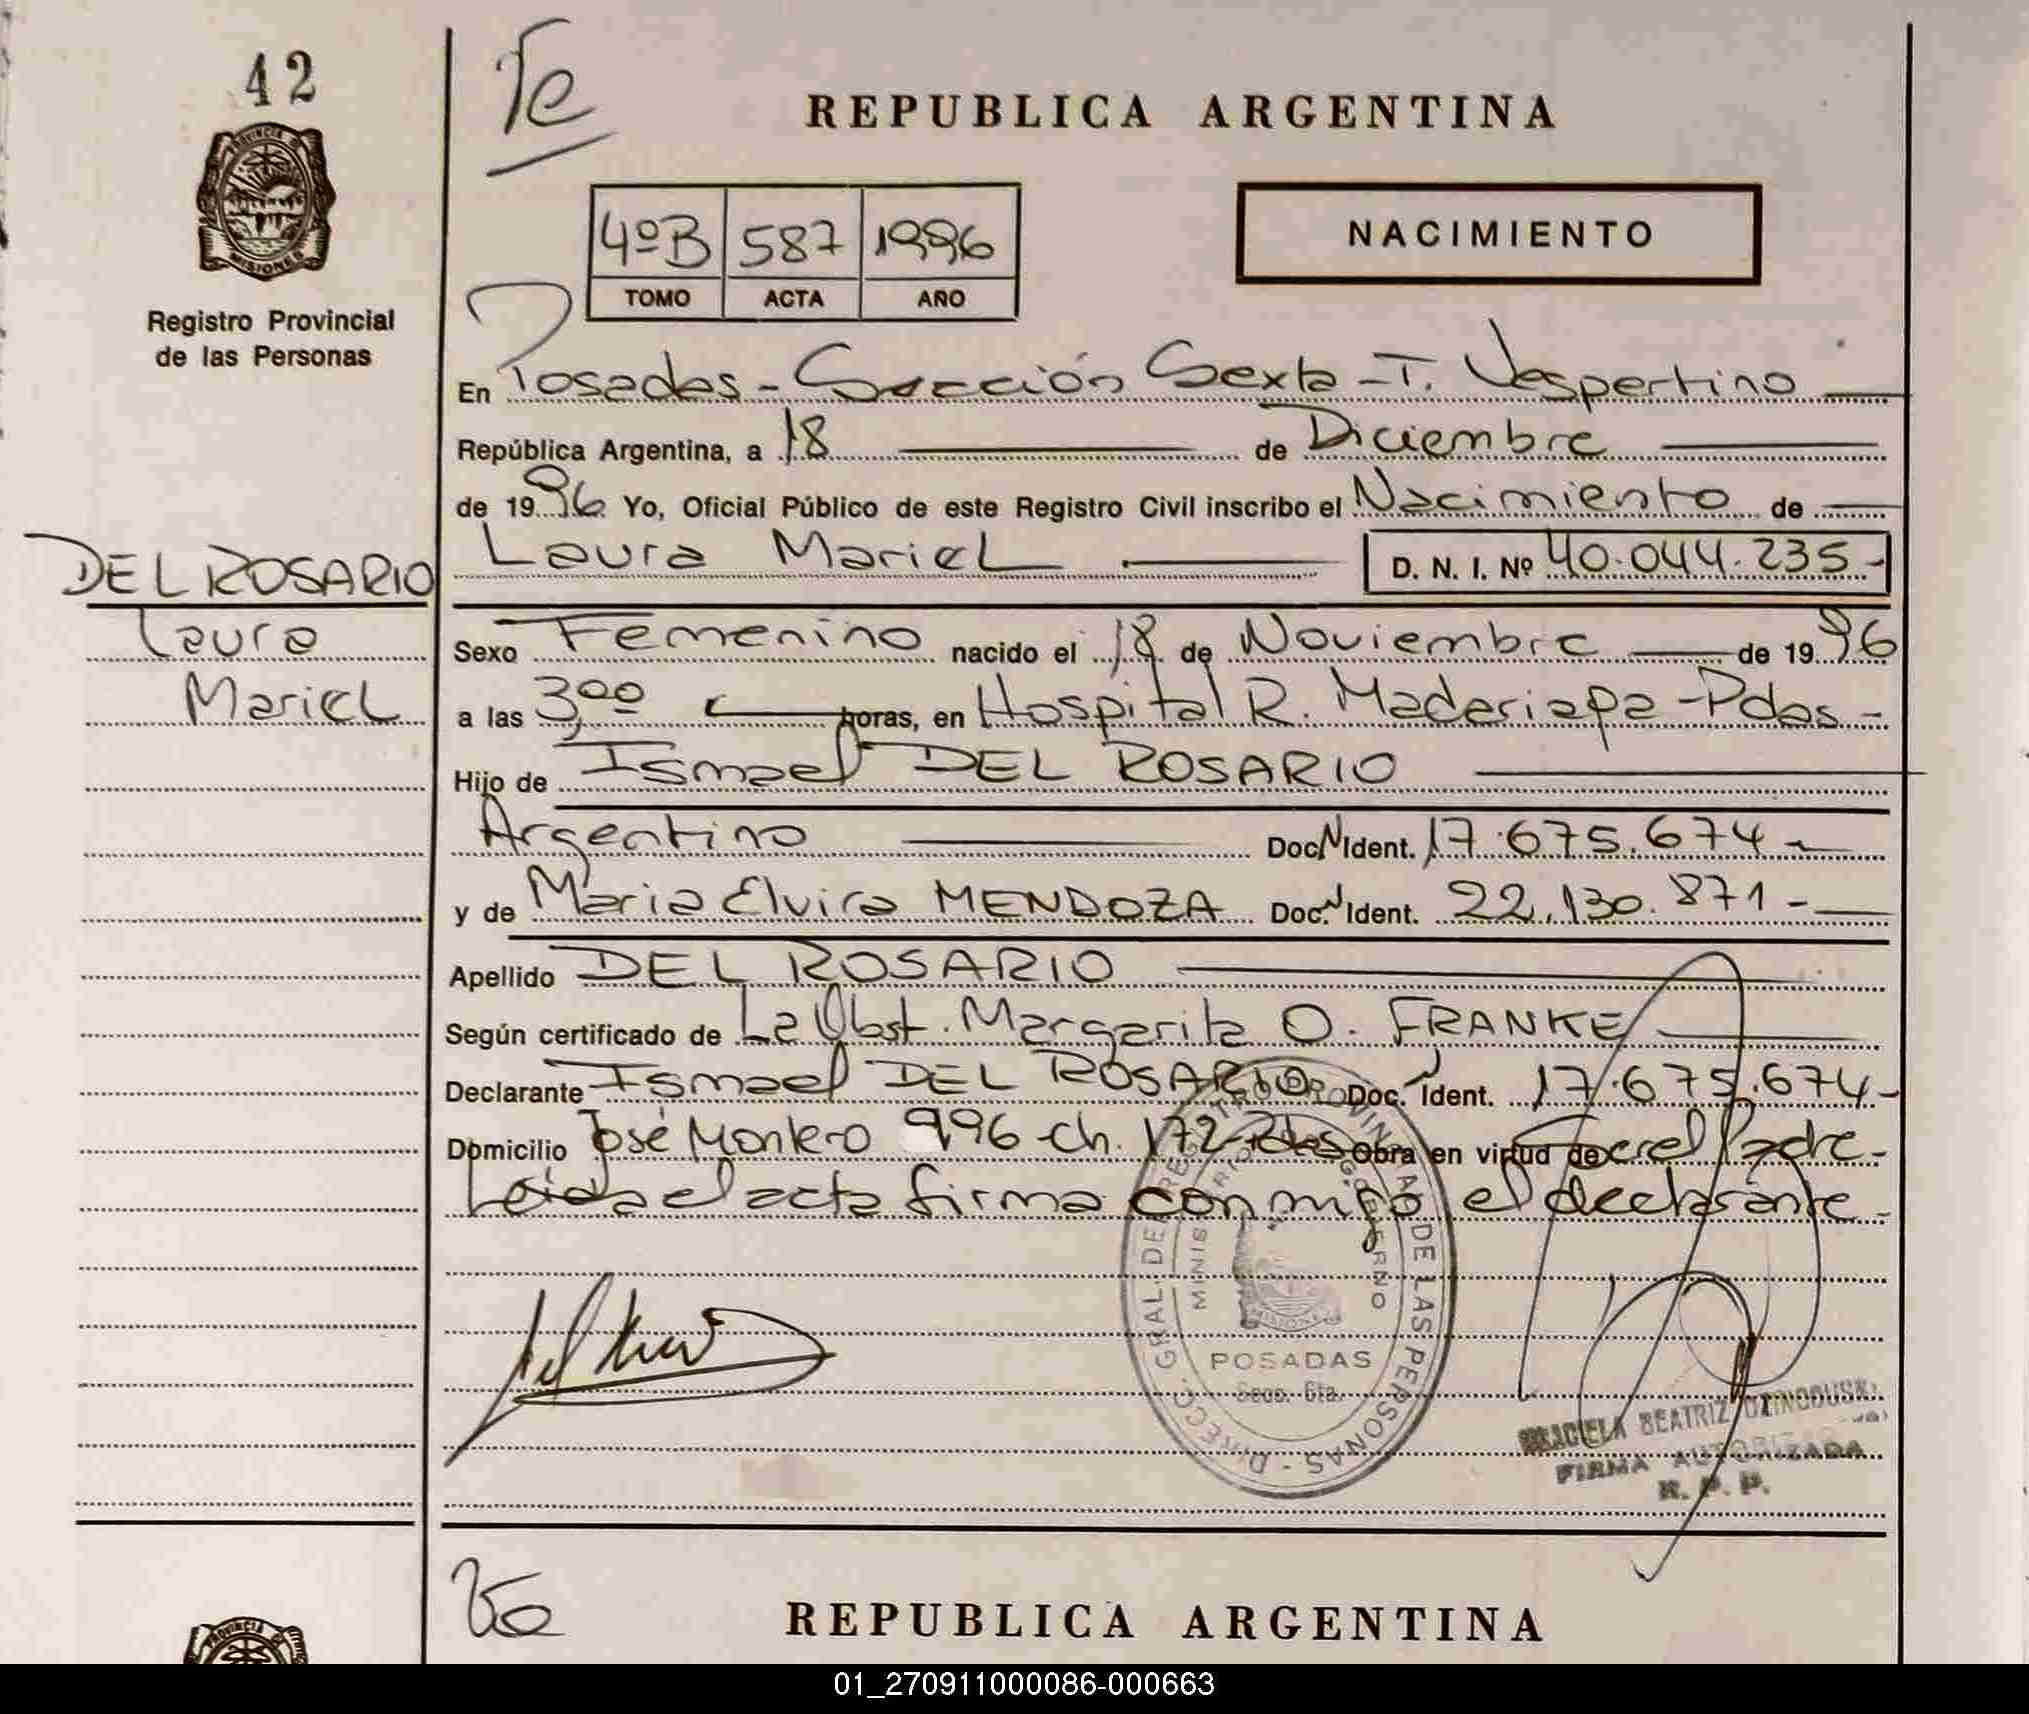 42
Te
REPUBLICA ARGENTINA
PROVINCIA DE
MISIONES
4ºB 587 1996
TOMO ACTA AÑO
NACIMIENTO
Registro Provincial
de las Personas
En Posadas - Sección Sexta - T. Vespertino
República Argentina, a 18 de Diciembre
de 1996 Yo, Oficial Público de este Registro Civil inscribo el Nacimiento de
Laura Mariel D. N. I. Nº 40.044.235.-
DEL ROSARIO
Laura
Mariel
Sexo Femenino nacido el 18 de Noviembre de 1996
a las 3,00 horas, en Hospital R. Madariaga - Pdas -
Hijo de Ismael DEL ROSARIO
Argentino Doc. Ident. 17.675.674
y de Maria Elvira MENDOZA Doc. Ident. 22.130.871 -
Apellido DEL ROSARIO
Según certificado de La Obst. Margarita O. FRANKE
Declarante Ismael DEL ROSARIO Doc. Ident. 17.675.674-
Domicilio José Montero 996 - ch. 172 - Pdas Obra en virtud de Ser el Padre -
Leída el acta firma conmigo el declarante -
DIRECC. GRAL. DE REGISTRO PROVINCIAL DE LAS PERSONAS
MINISTERIO GOBIERNO
MISIONES
POSADAS
Secc. 6ta.
GRACIELA BEATRIZ
FIRMA AUTORIZADA
R. P. P.
REPUBLICA ARGENTINA
PROVINCIA
01_270911000086-000663